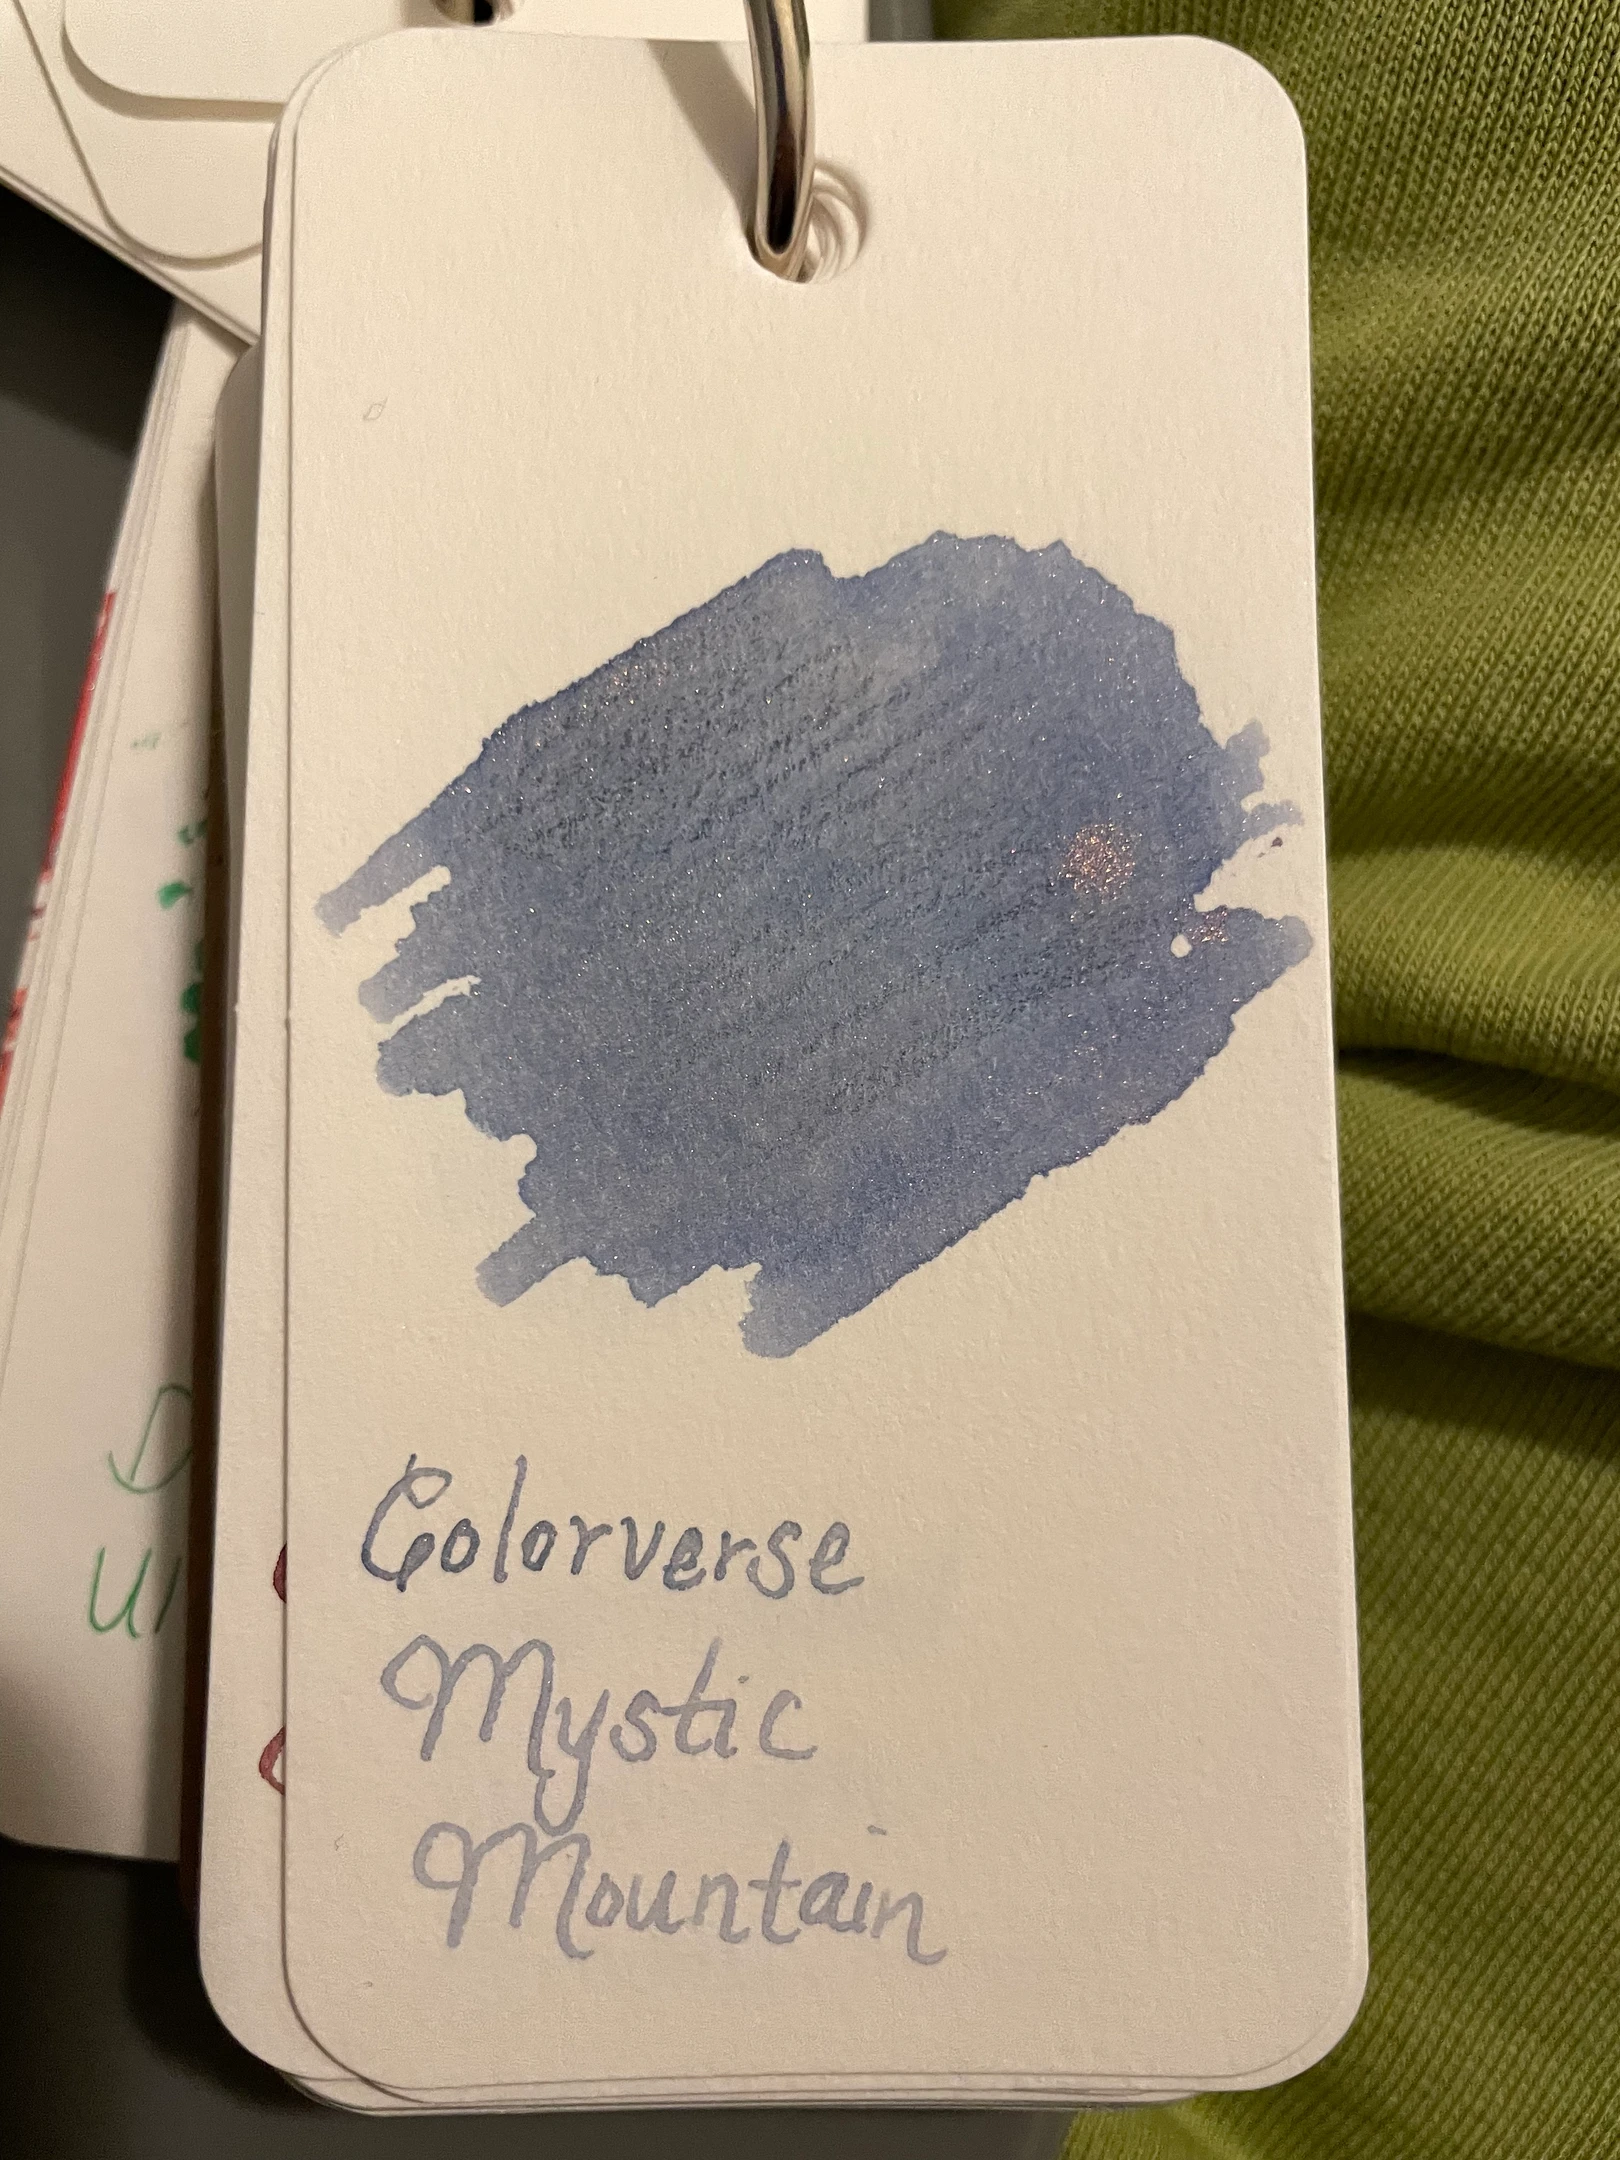 Colorverse
Mystic
Mountain